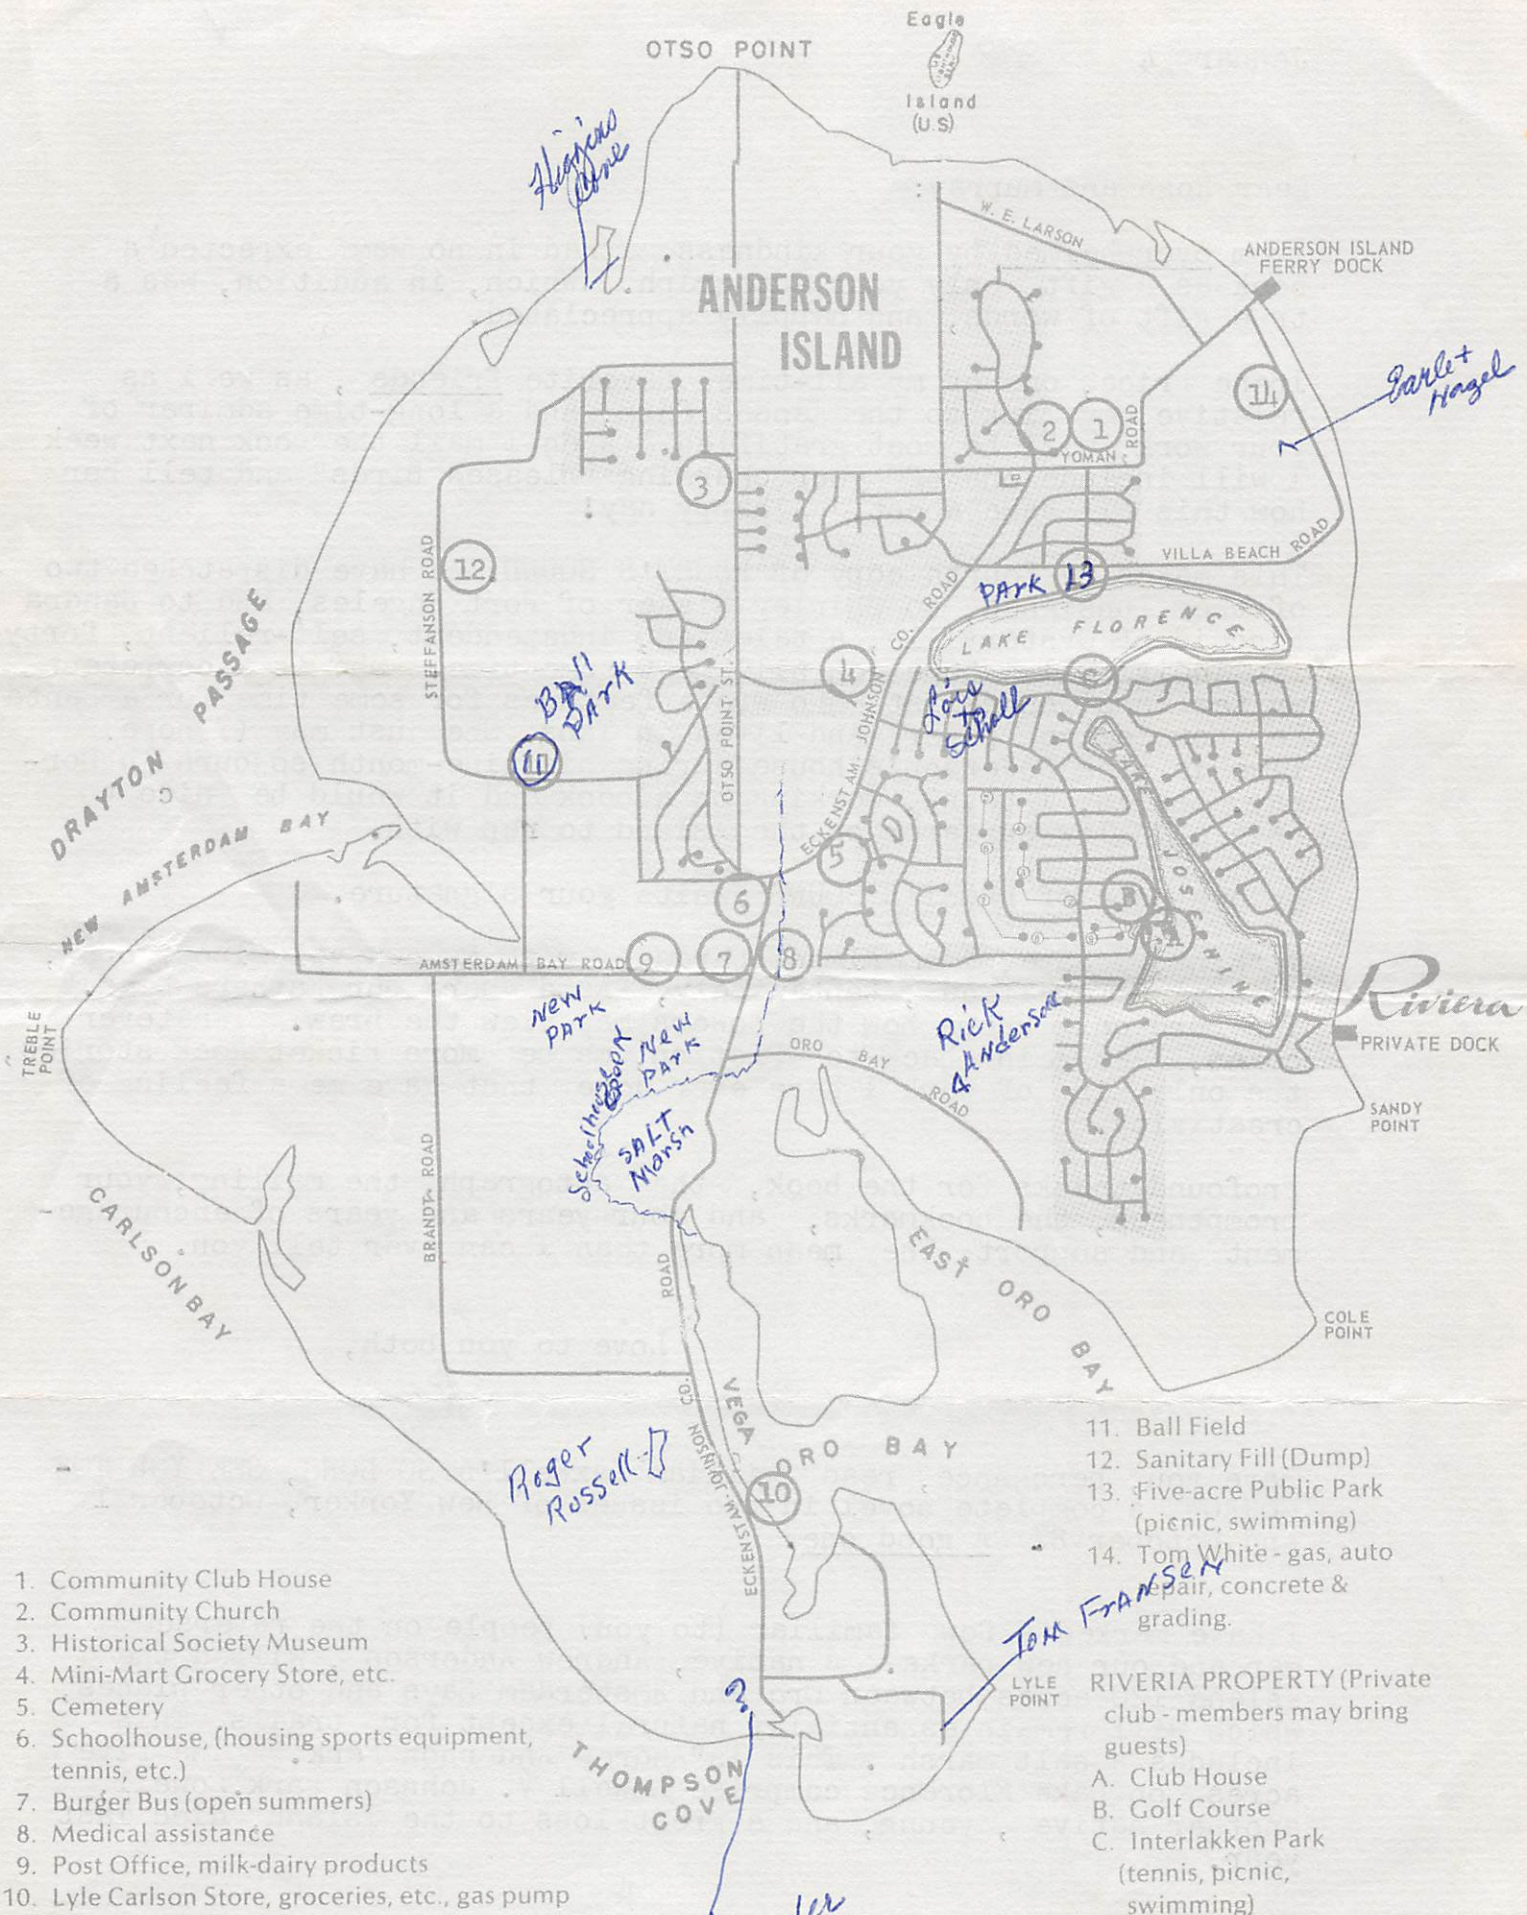 Eagle
Island
(U.S)
OTSO POINT
Higgins
Cove
W. E. LARSON
ANDERSON ISLAND
FERRY DOCK
ANDERSON
ISLAND
Earle +
Hazel
14
2
1
ROAD
YOMAN
3
STEFFANSON ROAD
12
VILLA BEACH ROAD
PARK 13
LAKE FLORENCE
CO. ROAD
4
C
Lois
Scholl
BALL
PARK
11
OTSO POINT ST.
ECKENSTAM-JOHNSON
DRAYTON PASSAGE
NEW AMSTERDAM BAY
LAKE JOSEPHINE
D
5
B
A
6
AMSTERDAM BAY ROAD
9
7
8
NEW
PARK
NEW
PARK
Schoolhouse
SALT
Marsh
Rick
Anderson
ORO BAY ROAD
Riviera
PRIVATE DOCK
TREBLE
POINT
SANDY
POINT
BRANDT ROAD
CARLSON BAY
ROAD
EAST ORO BAY
COLE
POINT
VEGA
ORO BAY
ECKENSTAM-JOHNSON CO.
Roger
Russell
10
?
Tom FrANSEN
LYLE
POINT
THOMPSON
COVE
1. Community Club House
2. Community Church
3. Historical Society Museum
4. Mini-Mart Grocery Store, etc.
5. Cemetery
6. Schoolhouse, (housing sports equipment,
tennis, etc.)
7. Burger Bus (open summers)
8. Medical assistance
9. Post Office, milk-dairy products
10. Lyle Carlson Store, groceries, etc., gas pump
11. Ball Field
12. Sanitary Fill (Dump)
13. Five-acre Public Park
(picnic, swimming)
14. Tom White - gas, auto
repair, concrete &
grading.
RIVERIA PROPERTY (Private
club - members may bring
guests)
A. Club House
B. Golf Course
C. Interlakken Park
(tennis, picnic,
swimming)